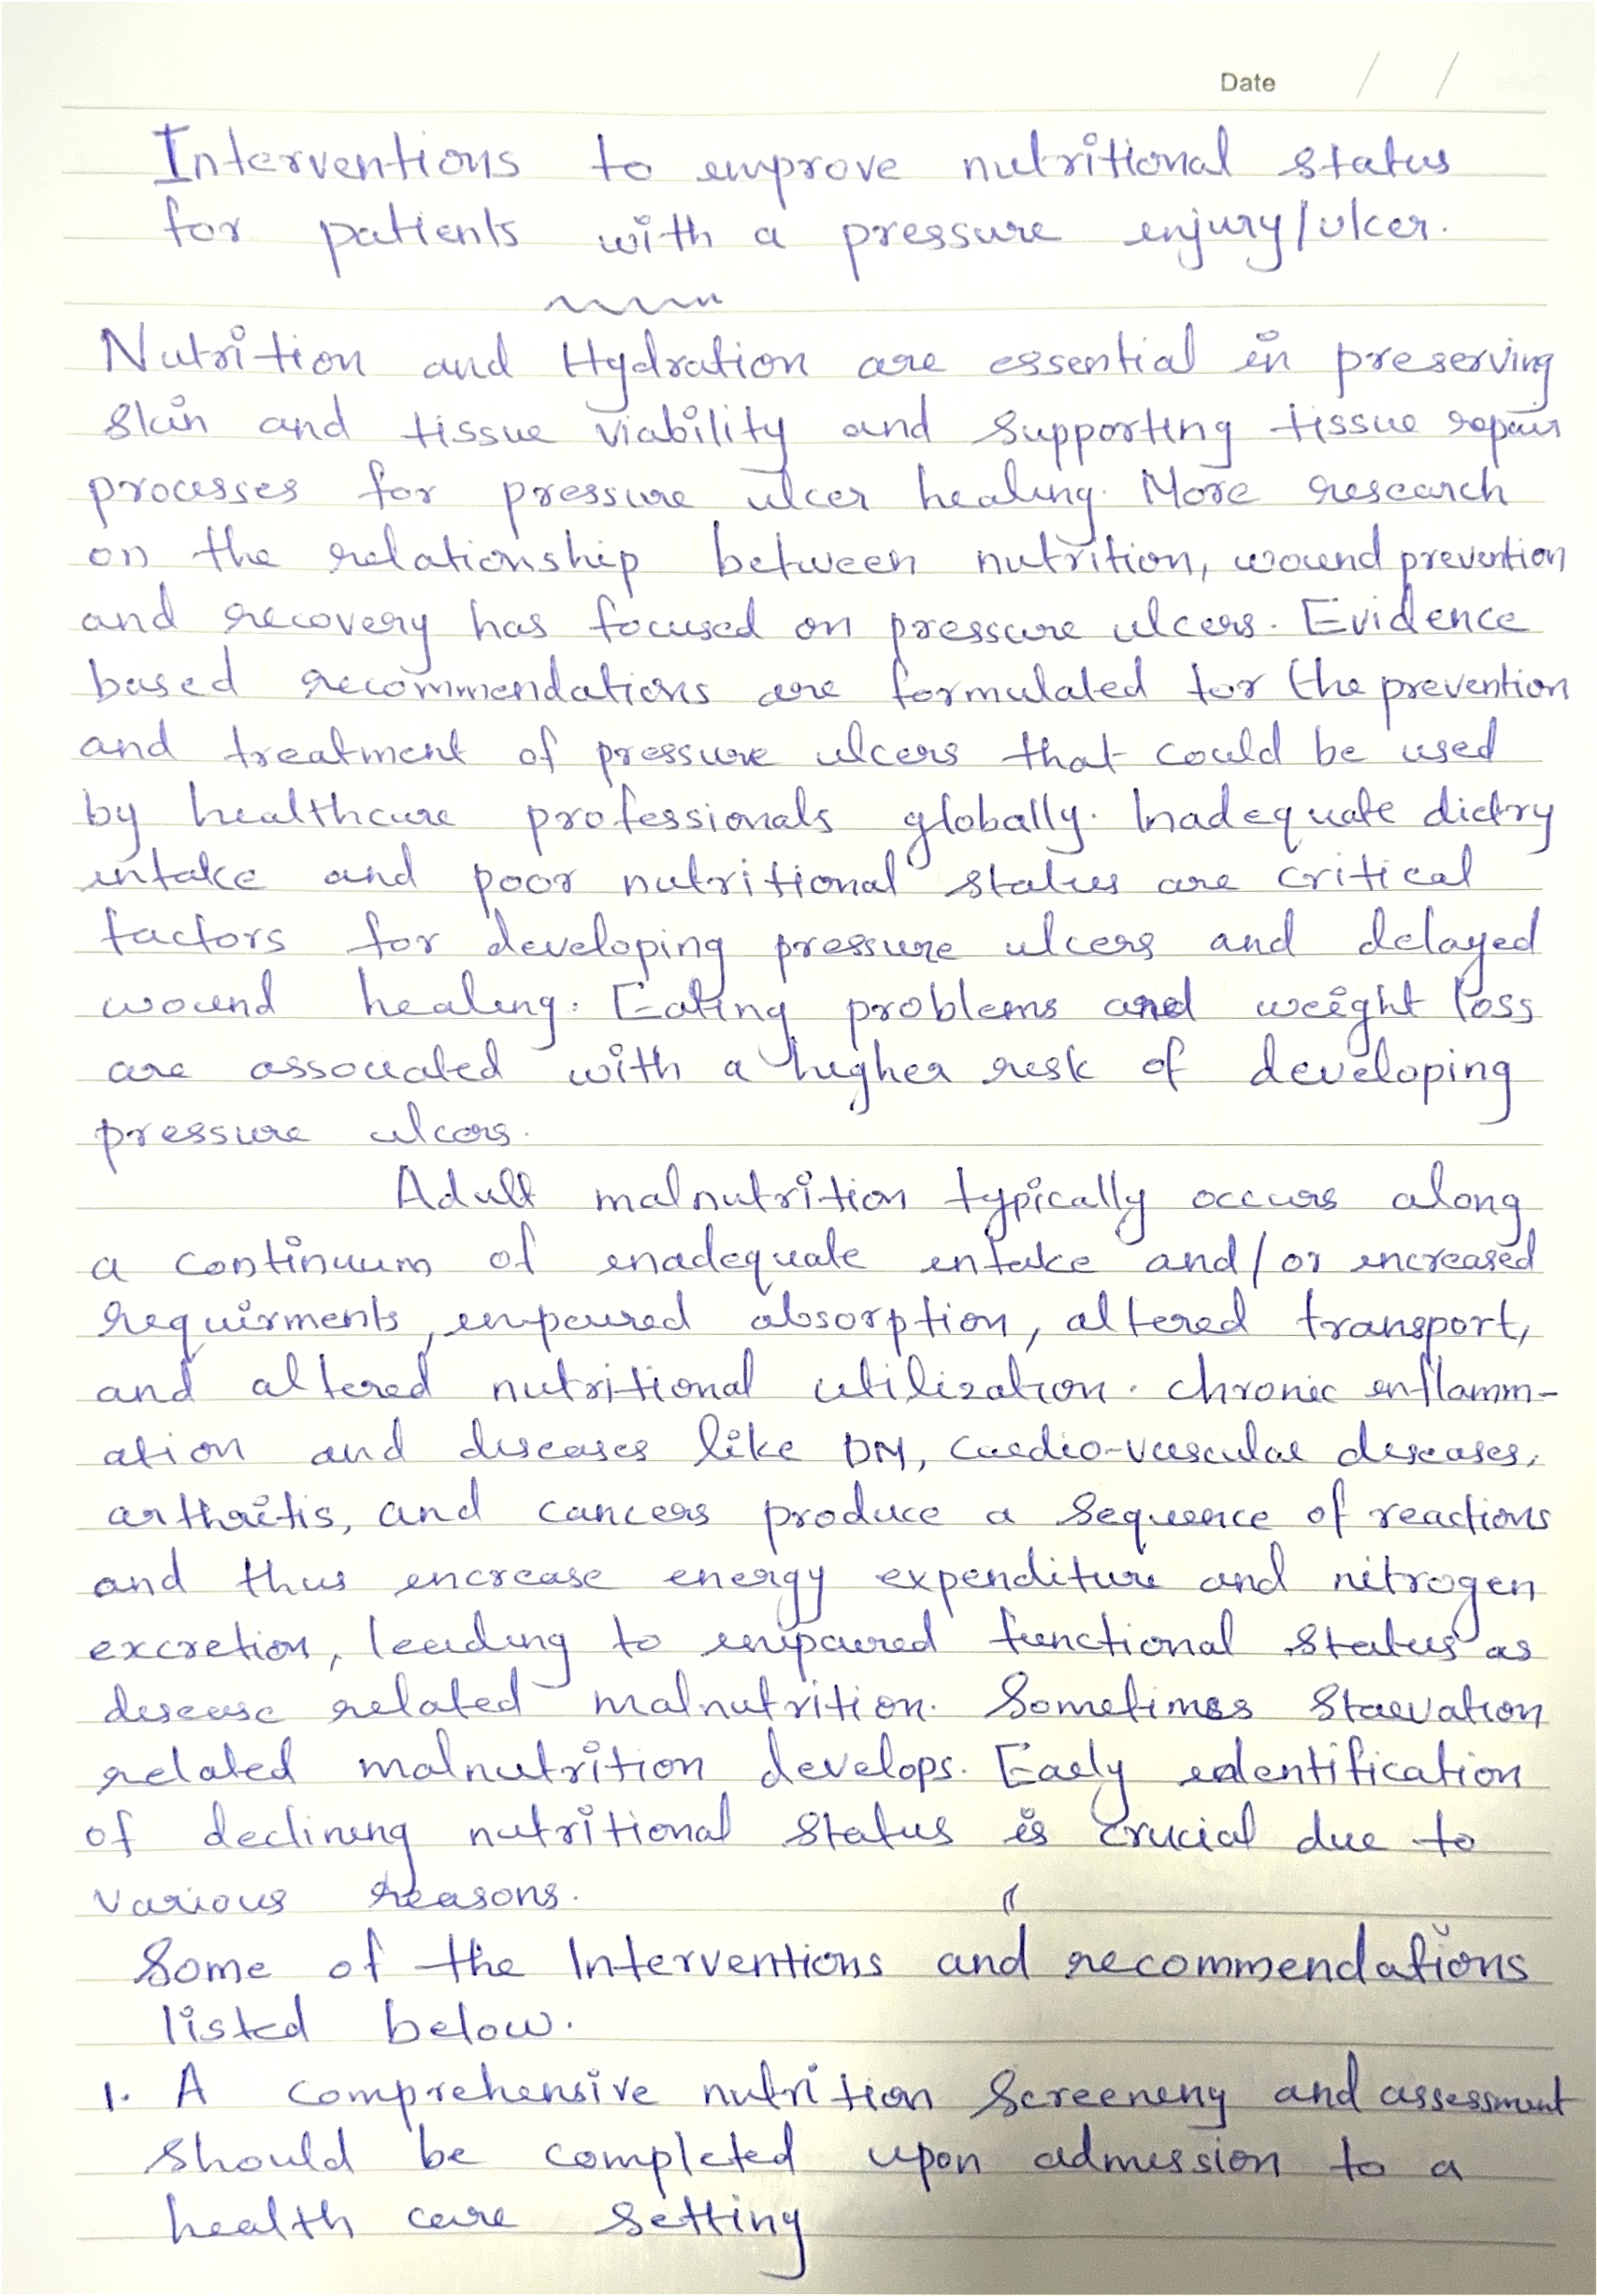 Date / /
Interventions to improve nutritional status
for patients with a pressure injury/ulcer.
Nutrition and Hydration are essential in preserving
skin and tissue viability and supporting tissue repair
processes for pressure ulcer healing. More research
on the relationship between nutrition, wound prevention
and recovery has focused on pressure ulcers. Evidence
based recommendations are formulated for the prevention
and treatment of pressure ulcers that could be used
by healthcare professionals globally. Inadequate dietry
intake and poor nutritional status are critical
factors for developing pressure ulcers and delayed
wound healing. Eating problems and weight loss
are associated with a higher risk of developing
pressure ulcers.
Adult malnutrition typically occurs along
a continuum of inadequate intake and/or increased
requirments, impaired absorption, altered transport,
and altered nutritional utilization. chronic inflamm-
ation and diseases like DM, Cardio-vascular diseases,
arthritis, and cancers produce a sequence of reactions
and thus increase energy expenditure and nitrogen
excretion, leading to impaired functional status as
disease related malnutrition. Sometimes Starvation
related malnutrition develops. Early identification
of declining nutritional status is crucial due to
various reasons.
Some of the Interventions and recommendations
listed below.
1. A comprehensive nutrition Screening and assessment
should be completed upon admission to a
health care setting